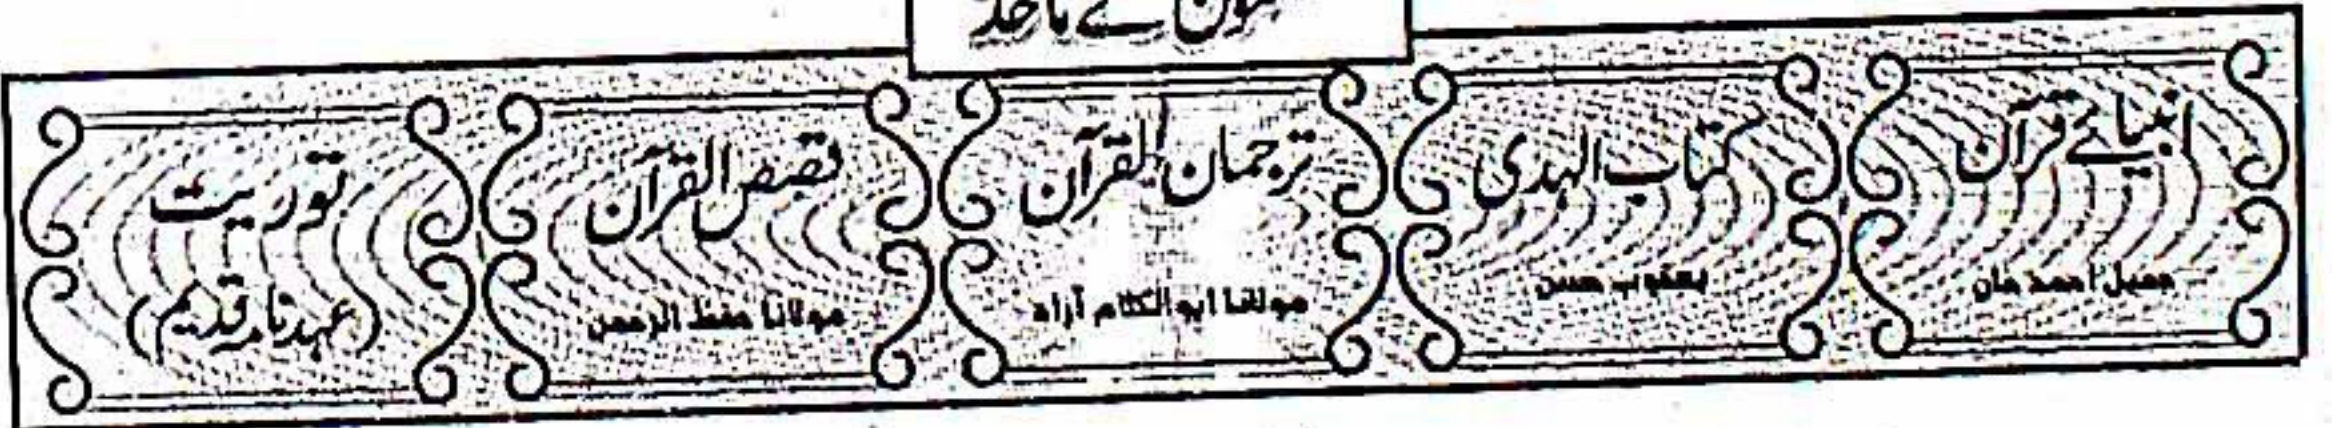 کے ماخذ
انبیائے قرآن
جمیل احمد خان
کتاب الہدی
یعقوب حسن
ترجمان القرآن
مولانا ابوالکلام آزاد
قصص القرآن
مولانا حفظ الرحمن
توریت
(عہد نامہ قدیم)